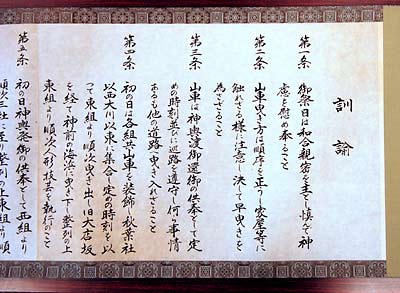 訓諭
第一条
御祭日は和合親密を主とし慎んで神
慮を慰め奉ること
第二条
山車曳き方は順序を正うし家屋等に
触れざる様に注意し決して早曳きを
為さざること
第三条
山車は神輿渡御還御の供奉として定
めの時刻並びに巡路を遵守し何の事情
あるも他の道路へ曳き入れざること
第四条
初の日は各組共山車を装飾し秋葉社
以西大川以東に集合し定めの時刻を以
って東組より順次曳き出し旧大店坂
を経て神前の海浜に曳き下し整列の上
東組より順次人形技芸を執行のこと
第五条
初の日神輿発御の供奉として西組より
順次三社に至り整列の上東組より順